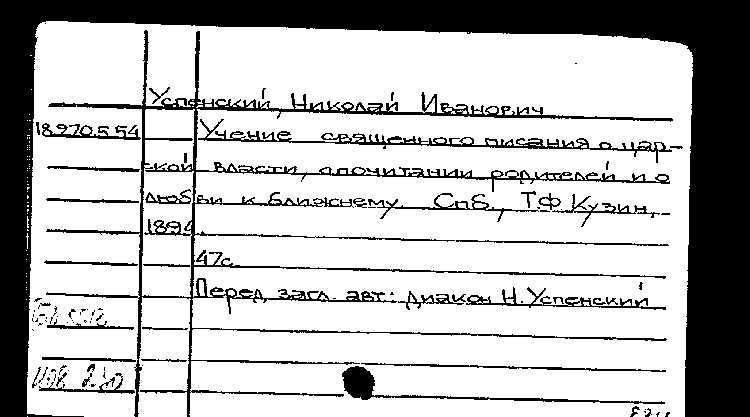 Успенский, Николай Иванович
18.270.5.54 Учение священного писания о цар-
ской власти, о почитании родителей и о
любви к ближнему. Спб., ТФ Кузин,
1894.
47с.
Перед загл. авт: диакон Н. Успенский